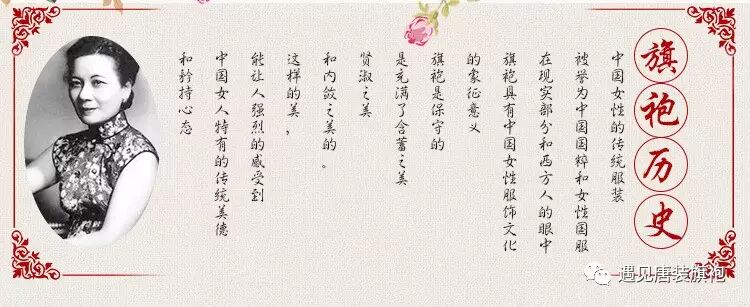 旗袍历史
中国女性的传统服装
被誉为中国国粹和女性国服
在现实部分和西方人的眼中
旗袍具有中国女性服饰文化
的象征意义
旗袍是保守的
是充满了含蓄之美
贤淑之美
和内敛之美的。
这样的美，
能让人强烈的感受到
中国女人特有的传统美德
和矜持心态
遇见唐装旗袍